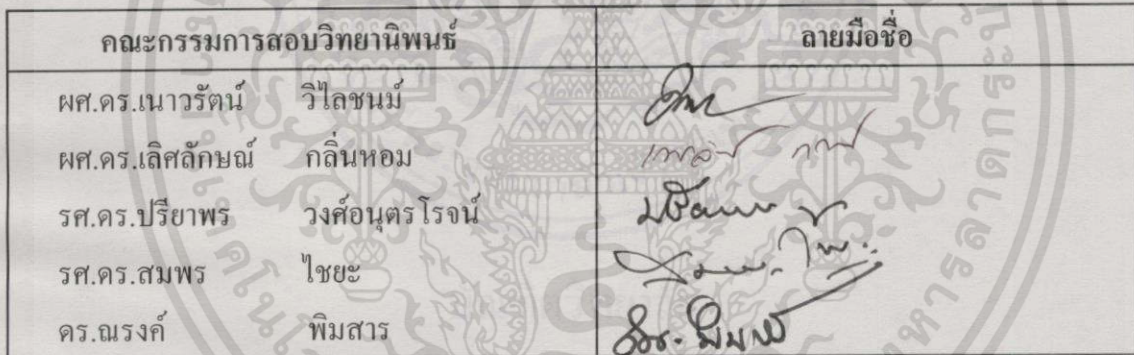 คณะกรรมการสอบวิทยานิพนธ์ ลายมือชื่อ
ผศ.ดร.เนาวรัตน์ วิไลชนม์
ผศ.ดร.เลิศลักษณ์ กลิ่นหอม
รศ.ดร.ปรียาพร วงศ์อนุตรโรจน์
รศ.ดร.สมพร ไชยะ
ดร.ณรงค์ พิมสาร